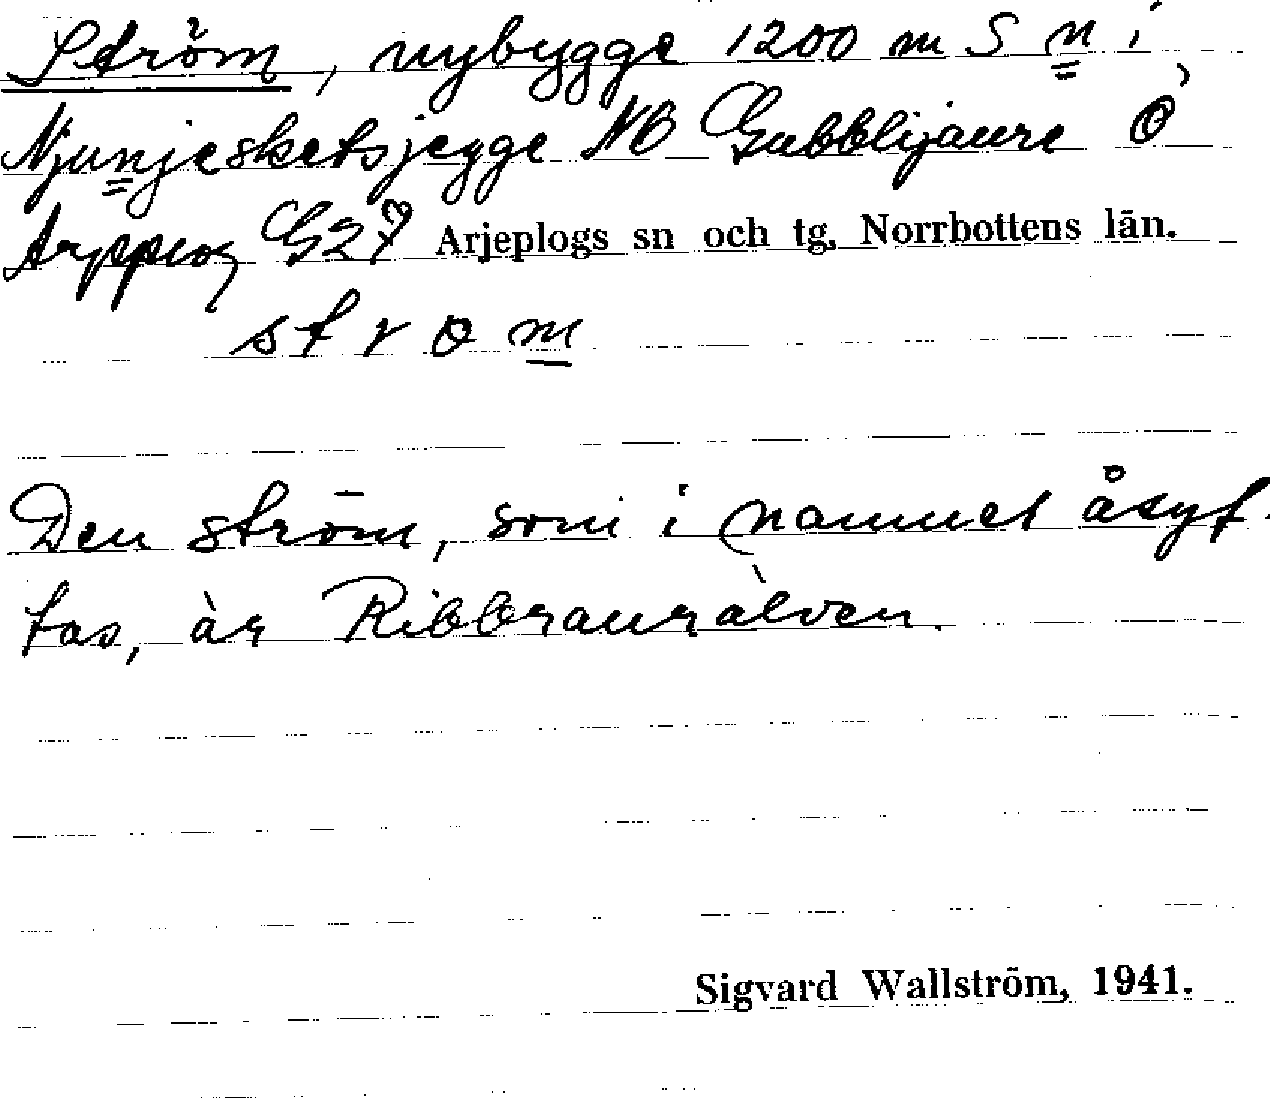 Ström, nybygge 1200 m S n i
Njunjesketsjegge NO Gubblijaure Ö
Arjeplog G27 Arjeplogs sn och tg, Norrbottens län.
strom
Den ström, som i namnet åsyf-
tas, är Ribbraurälven.
Sigvard Wallström, 1941.